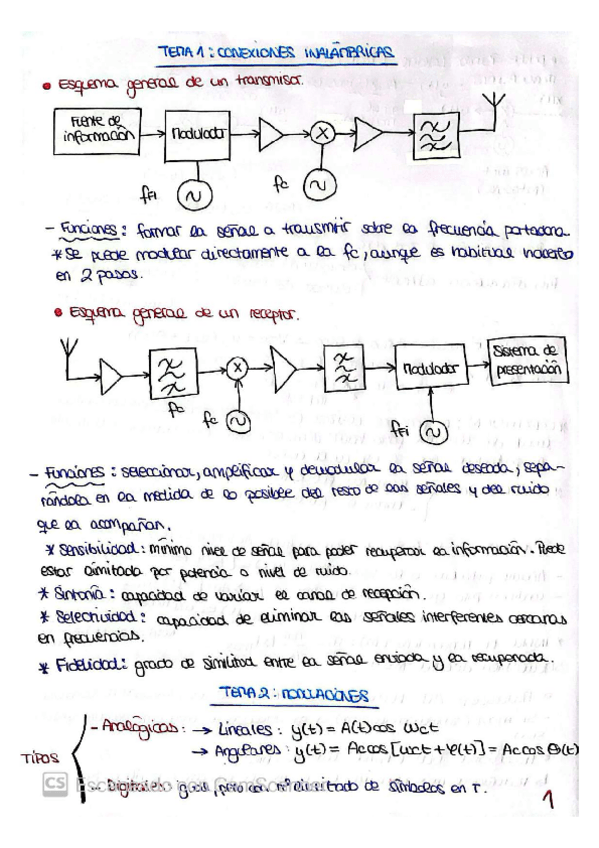 TEMA 1: CONEXIONES INALÁMBRICAS
• Esquema general de un transmisor.
Fuente de información
Modulador
X
fFi
fc
- Funciones: formar la señal a transmitir sobre la frecuencia portadora.
* Se puede modular directamente a la fc, aunque es habitual hacerlo
en 2 pasos.
• Esquema general de un receptor.
X
Modulador
Sistema de presentación
fc
fc
fFi
- Funciones: seleccionar, amplificar y demodular la señal deseada, sepa-
rándola en la medida de lo posible del resto de las señales y del ruido
que la acompañan.
* Sensibilidad: mínimo nivel de señal para poder recuperar la información. Puede
estar limitada por potencia o nivel de ruido.
* Sintonía: capacidad de variar el canal de recepción.
* Selectividad: capacidad de eliminar las señales interferentes cercanas
en frecuencias.
* Fidelidad: grado de similitud entre la señal enviada y la recuperada.
TEMA 2: MODULACIONES
TIPOS
- Analógicas: → Lineales: y(t) = A(t)cos wct
→ Angulares: y(t) = Ac cos [wct + φ(t)] = Ac cos Θ(t)
- Digitales: igual, pero con nº limitado de símbolos en T.
CS Escaneado con CamScanner
1